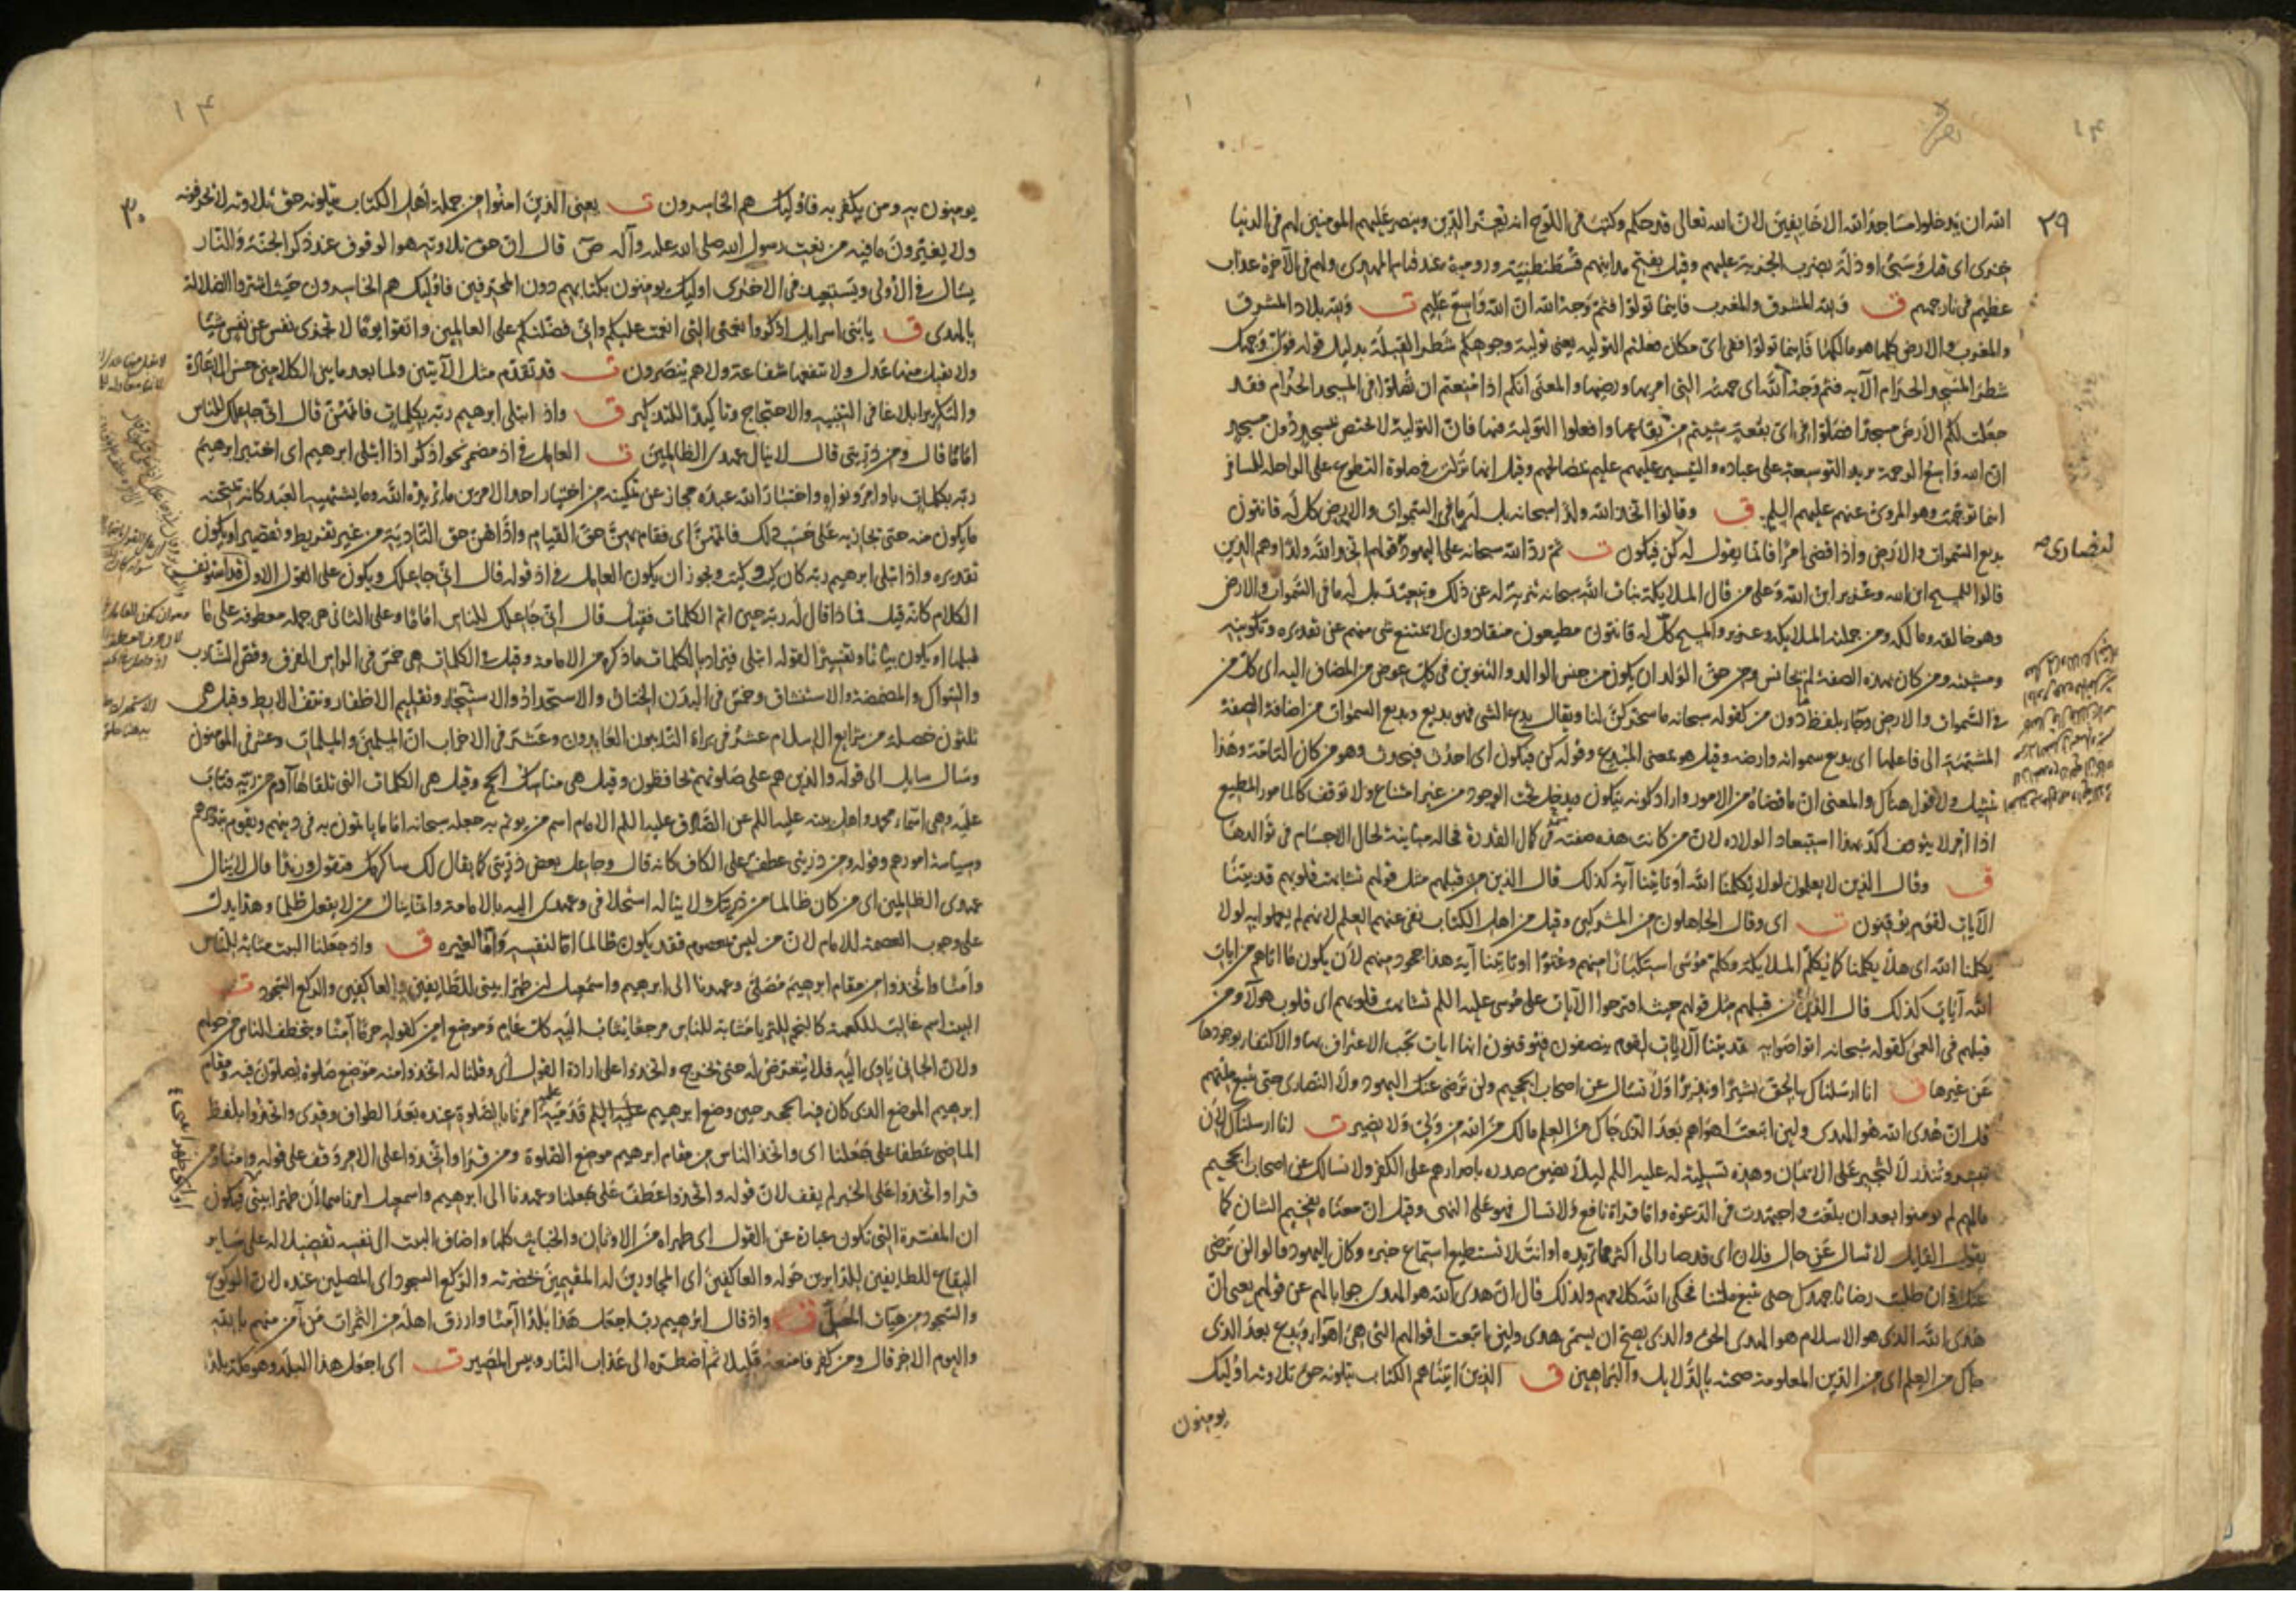 ٢٩
الله ان يدخلوا مساجد الله الا خايفين لان الله تعالى قد حكم وكتب في اللوح انه يعز الدين وينصر عليهم المومنين لهم في الدنيا
خزى اى قتل وسبى او ذلة بضرب الجزية عليهم وقيل بفتح مداينهم قسطنطنية ورومية عند قيام المهدى ولهم في الآخرة عذاب
عظيم في نار جهنم ق ولله المشرق والمغرب فاينما تولوا فثم وجه الله ان الله واسع عليم ت ولله بلاد المشرق
والمغرب والارض كلها هو مالكها فاينما تولوا ففى اى مكان فعلتم التولية يعنى تولية وجوهكم شطر القبلة بدليل قوله فول وجهك
شطر المسجد الحرام الآيه فثم وجه الله اى جهته التى امر بها ورضيها والمعنى انكم اذا منعتم ان تصلوا في المسجد الحرام فقد
جعلت لكم الارض مسجدا فصلوا في اى بقعة شيتم من بقاعها وافعلوا التولية فيها فان التولية لا تختص بمسجد دون مسجد
ان الله واسع الرحمة يريد التوسعة على عباده والتيسير عليهم عليم بمصالحهم وقيل انها نزلت في صلوة التطوع على الراحلة للمسافر
اينما توجهت وهو المروى عنهم عليهم السلم ق وقالوا اتخذ الله ولدا سبحانه بل له ما في السموات والارض كل له قانتون
بديع السموات والارض واذا قضى امرا فانما يقول له كن فيكون ت ثم رد الله سبحانه على اليهود قولهم اتخذ الله ولدا وهم الذين
قالوا المسيح ابن الله وعزير ابن الله وعلى من قال الملايكة بنات الله سبحانه تنزيه له عن ذلك وتبعيد بل له ما في السموات والارض
وهو خالقه ومالكه ومن جملته الملايكة وعزير والمسيح كل له قانتون مطيعون منقادون لا يمتنع شى منهم عن تقديره وتكوينه
ومشيته ومن كان بهذه الصفة لم يجانس ومن حق الولد ان يكون من جنس الوالد والتنوين في كل عوض من المضاف اليه اى كل من
في السموات والارض وجاء بلفظ ما دون من كقوله سبحانه ما سخركن لنا ويقال بدع الشى فهو بديع وبديع السموات من اضافة الصفة
المشبهة الى فاعلها اى بديع سمواته وارضه وقيل هو بمعنى المبدع وقوله كن فيكون اى احدث فيحدث وهو من كان التامة وهذا
تمثيل ولا قول هناك والمعنى ان ما قضاه من الامور واراد كونه يتكون ويدخل تحت الوجود من غير امتناع ولا توقف كالمامور المطيع
اذا امر لا يتوقف اكد بهذا استبعاد الولادة لان من كانت هذه صفته في كمال القدرة فحاله مباينة لحال الاجسام في توالدها
ق وقال الذين لا يعلمون لولا يكلمنا الله او تاتينا آية كذلك قال الذين من قبلهم مثل قولهم تشابهت قلوبهم قد بينا
الآيات لقوم يوقنون ت اى وقال الجاهلون من المشركين وقيل من اهل الكتاب نفى عنهم العلم لانهم لم يعملوا به لولا
يكلمنا الله اى هلا يكلمنا كما يكلم الملايكة وكلم موسى استكبارا منهم وعتوا او تاتينا آية هذا جحود منهم لان يكون ما اتاهم من ايات
الله آيات كذلك قال الذين من قبلهم مثل قولهم حيث اقترحوا الآيات على موسى عليه السلم تشابهت قلوبهم اى قلوب هولاء ومن
قبلهم في العمى كقوله سبحانه اتواصوا به قد بينا الآيات لقوم ينصفون فيوقنون انها ايات يجب الاعتراف بها والاكتفاء بوجودها
عن غيرها ق انا ارسلناك بالحق بشيرا ونذيرا ولا تسال عن اصحاب الجحيم ولن ترضى عنك اليهود ولا النصارى حتى تتبع ملتهم
قل ان هدى الله هو الهدى ولين اتبعت اهواءهم بعد الذى جاك من العلم مالك من الله من ولى ولا نصير ت انا ارسلناك لان
تبشر وتنذر لا لتجبر على الايمان وهذه تسلية له عليه السلم ليلا يضيق صدره باصرارهم على الكفر ولا نسالك عن اصحاب الجحيم
مالهم لم يومنوا بعد ان بلغت واجتهدت في الدعوة واما قراة نافع ولا تسال فهو على النهى وقيل ان معناه تفخيم الشان كما
يقول القايل لا تسال عن حال فلان اى قد صار الى اكثر مما تريده او انت لا تستطيع استماع خبره وكان اليهود قالوا لن نرضى
عنك وان طلبت رضانا جهدك حتى تتبع ملتنا فحكى الله كلامهم ولذلك قال ان هدى الله هو الهدى جوابا لهم عن قولهم يعنى ان
هدى الله الذى هو الاسلام هو الهدى الحق والذى يصح ان يسمى هدى ولين اتبعت اقوالهم التى هى اهواء وبدع بعد الذى
جاك من العلم اى من الدين المعلوم صحته بالدلايل والبراهين ق الذين آتيناهم الكتاب يتلونه حق تلاوته اوليك
يومنون
٣٠
يومنون به ومن يكفر به فاوليك هم الخاسرون ت يعنى الذين امنوا من جملة اهل الكتاب يتلونه حق تلاوته لا يحرفونه
ولا يغيرون ما فيه من نعت رسول الله صلى الله عليه وآله ص قال ان حق تلاوته هو الوقوف عند ذكر الجنة والنار
يسال في الاولى ويستعيذ في الاخرى اوليك يومنون بكتابهم دون المحرفين فاوليك هم الخاسرون حيث اشتروا الضلالة
بالهدى ق يا بنى اسرايل اذكروا نعمتى التى انعمت عليكم وانى فضلتكم على العالمين واتقوا يوما لا تجزى نفس عن نفس شيا
ولا يقبل منها عدل ولا تنفعها شفاعة ولا هم ينصرون ت قد تقدم مثل الآيتين ولما بعد ما بين الكلامين حسن الاعادة
والتكرير ابلاغا في التنبيه والاحتجاج وتاكيدا للتذكير ق واذ ابتلى ابرهيم ربه بكلمات فاتمهن قال انى جاعلك للناس
اماما قال ومن ذريتى قال لا ينال عهدى الظالمين ت العامل في اذ مضمر نحو اذكر اذا ابتلى ابرهيم اى اختبر ابرهيم
ربه بكلمات باوامر ونواه واختبار الله عبده مجاز عن تمكينه من اختيار احد الامرين ما يريده الله وما يشتهيه العبد كانه يمتحنه
ما يكون منه حتى يجازيه على حسب ذلك فاتمهن اى فقام بهن حق القيام واداهن حق التادية من غير تفريط وتقصير او يكون
تقديره واذ ابتلى ابرهيم ربه كان كيت وكيت ويجوز ان يكون العامل في اذ قوله قال انى جاعلك ويكون على القول الاول قد استونف
الكلام كانه قيل فماذا قال له ربه حين اتم الكلمات فقيل قال انى جاعلك للناس اماما وعلى الثانى هى جملة معطوفة على ما
قبلها او يكون بيانا وتفسيرا لقوله ابتلى فيراد بالكلمات ما ذكره من الامامة وقيل في الكلمات هى خمس في الراس الفرق وقص الشارب
والسواك والمضمضة والاستنشاق وخمس في البدن الختان والاستحداد والاستنجاء وتقليم الاظفار ونتف الابط وقيل هى
ثلثون خصلة من شرايع الاسلام عشر في براة التايبون العابدون وعشر في الاحزاب ان المسلمين والمسلمات وعشر في المومنون
وسال سايل الى قوله والذين هم على صلوتهم يحافظون وقيل هى مناسك الحج وقيل هى الكلمات التى تلقاها آدم من ربه فتاب
عليه وهى اسماء محمد واهل بيته عليه السلم عن الصادق عليه السلم الامام اسم من يوتم به جعله سبحانه اماما ياتمون به في دينهم ويقوم بتدبيرهم
وسياسة امورهم وقوله ومن ذريتى عطف على الكاف كانه قال وجاعل بعض ذريتى كما يقال لك ساكرمك فتقول وزيدا قال لا ينال
عهدى الظالمين اى من كان ظالما من ذريتك لا يناله استخلافى وعهدى اليه بالامامة وانما ينال من لا يفعل ظلما وهذا يدل
على وجوب العصمة للامام لان من ليس بمعصوم فقد يكون ظالما اما لنفسه واما لغيره ق واذ جعلنا البيت مثابة للناس
وامنا واتخذوا من مقام ابرهيم مصلى وعهدنا الى ابرهيم واسمعيل ان طهرا بيتى للطايفين والعاكفين والركع السجود ت
البيت اسم غالب للكعبة كالنجم للثريا مثابة للناس مرجعا يثاب اليه كل عام وموضع امن كقوله حرما آمنا ويتخطف الناس من حولهم
ولان الجانى ياوى اليه فلا يتعرض له حتى يخرج واتخذوا على ارادة القول اى وقلنا له اتخذوا منه موضع صلوة تصلون فيه ومقام
ابرهيم الموضع الذى كان فيه الحجر حين وضع ابرهيم عليه السلم قدميه عليه امرنا بالصلوة عنده بعد الطواف وقرى واتخذوا بلفظ
الماضى عطفا على جعلنا اى واتخذ الناس من مقام ابرهيم موضع الصلوة ومن قرا واتخذوا على الامر وقف على قوله وامنا ومن
قرا واتخذوا على الخبر لم يقف لان قوله واتخذوا عطف على جعلنا وعهدنا الى ابرهيم واسمعيل امرناهما ان طهرا بيتى فيكون
ان المفسرة التى تكون عبارة عن القول اى طهراه من الاوثان والخبايث كلها واضاف البيت الى نفسه تفضيلا له على ساير
البقاع للطايفين للدايرين حوله والعاكفين اى المجاورين له المقيمين بحضرته والركع السجود اى المصلين عنده لان الركوع
والسجود من هيات المصلى ق واذ قال ابرهيم رب اجعل هذا بلدا آمنا وارزق اهله من الثمرات من آمن منهم بالله
واليوم الاخر قال ومن كفر فامتعه قليلا ثم اضطره الى عذاب النار وبيس المصير ت اى اجعل هذا البلد وهو مكة بلدا